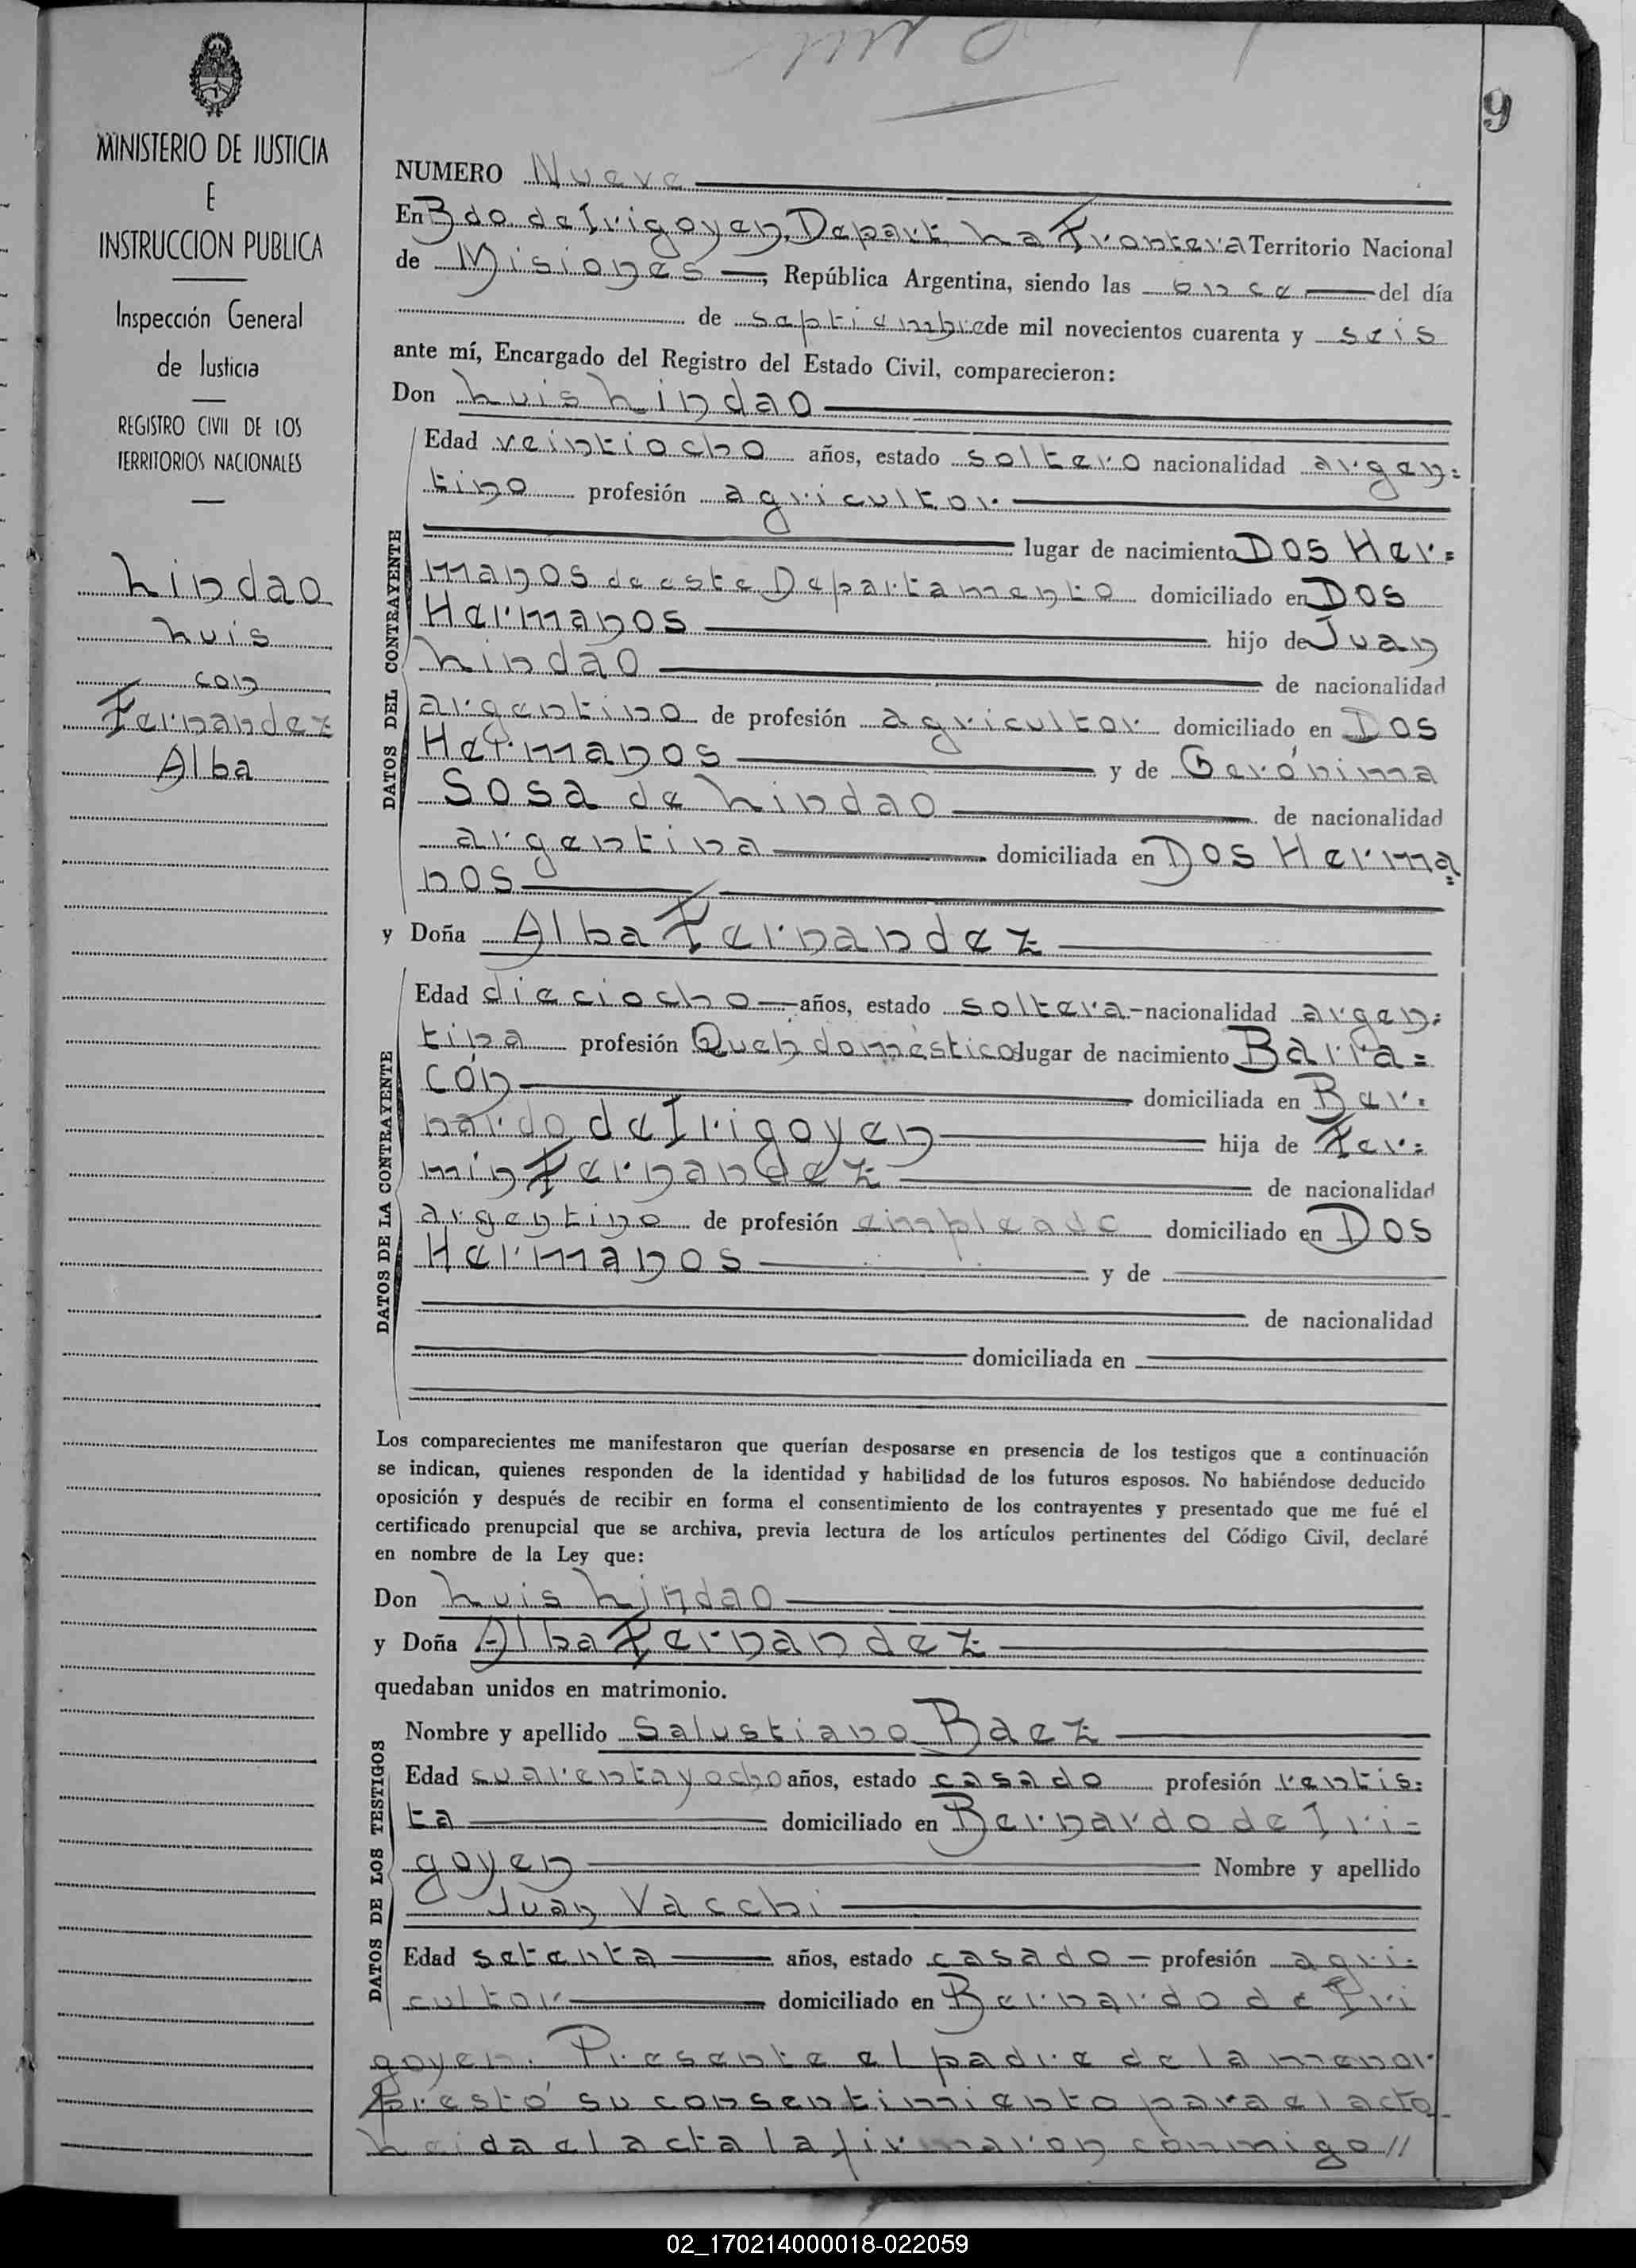 9
MINISTERIO DE JUSTICIA
E
INSTRUCCION PUBLICA
Inspección General
de Justicia
REGISTRO CIVIL DE LOS
TERRITORIOS NACIONALES
Lindao
Luis
con
Fernandez
Alba
NUMERO Nueve
En Bdo. de Irigoyen, Depart. La Frontera Territorio Nacional
de Misiones, República Argentina, siendo las once del día
de septiembre de mil novecientos cuarenta y seis
ante mí, Encargado del Registro del Estado Civil, comparecieron:
Don Luis Lindao
DATOS DEL CONTRAYENTE
Edad veintiocho años, estado soltero nacionalidad argen=
tino profesión agricultor
lugar de nacimiento Dos Her=
manos de este Departamento domiciliado en Dos
Hermanos hijo de Juan
Lindao de nacionalidad
argentino de profesión agricultor domiciliado en Dos
Hermanos y de Gerónima
Sosa de Lindao de nacionalidad
argentina domiciliada en Dos Herma=
nos
y Doña Alba Fernandez
DATOS DE LA CONTRAYENTE
Edad dieciocho años, estado soltera nacionalidad argen=
tina profesión Queh domésticos lugar de nacimiento Barra=
cón domiciliada en Ber=
nardo de Irigoyen hija de Fer=
mín Fernandez de nacionalidad
argentino de profesión empleado domiciliado en Dos
Hermanos y de
de nacionalidad
domiciliada en
Los comparecientes me manifestaron que querían desposarse en presencia de los testigos que a continuación
se indican, quienes responden de la identidad y habilidad de los futuros esposos. No habiéndose deducido
oposición y después de recibir en forma el consentimiento de los contrayentes y presentado que me fué el
certificado prenupcial que se archiva, previa lectura de los artículos pertinentes del Código Civil, declaré
en nombre de la Ley que:
Don Luis Lindao
y Doña Alba Fernandez
quedaban unidos en matrimonio.
DATOS DE LOS TESTIGOS
Nombre y apellido Salustiano Baez
Edad cuarenta y ocho años, estado casado profesión rentis=
ta domiciliado en Bernardo de Iri=
goyen Nombre y apellido
Juan Vacchi
Edad setenta años, estado casado profesión agri=
cultor domiciliado en Bernardo de Iri
goyen. Presente el padre de la menor
prestó su consentimiento para el acto.
Leída el acta la firmaron conmigo //
02_170214000018-022059